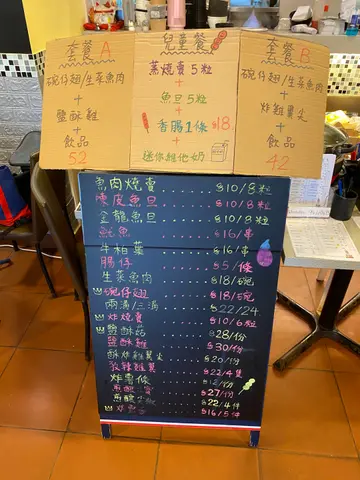 套餐A
碗仔翅/生菜魚肉
+
鹽酥雞
+
飲品
52
兒童餐
蒸燒賣5粒
+
魚旦5粒
+
香腸1條 $18
+
迷你維他奶
套餐B
碗仔翅/生菜魚肉
+
炸雞翼尖
+
飲品
42
魚肉燒賣 $10/8粒
陳皮魚旦 $10/8粒
金龍魚旦 $10/8粒
魷魚 $16/串
牛柏葉 $16/串
腸仔 $5/條
生菜魚肉 $18/碗
碗仔翅 $18/碗
兩溝/三溝 $22/24
炸燒賣 $10/6粒
鹽酥菇 $28/份
鹽酥雞 $30/份
酥炸雞翼尖 $20/份
$22/4隻
炸薯條 $12/份
$27/份
$22/4件
$16/5件